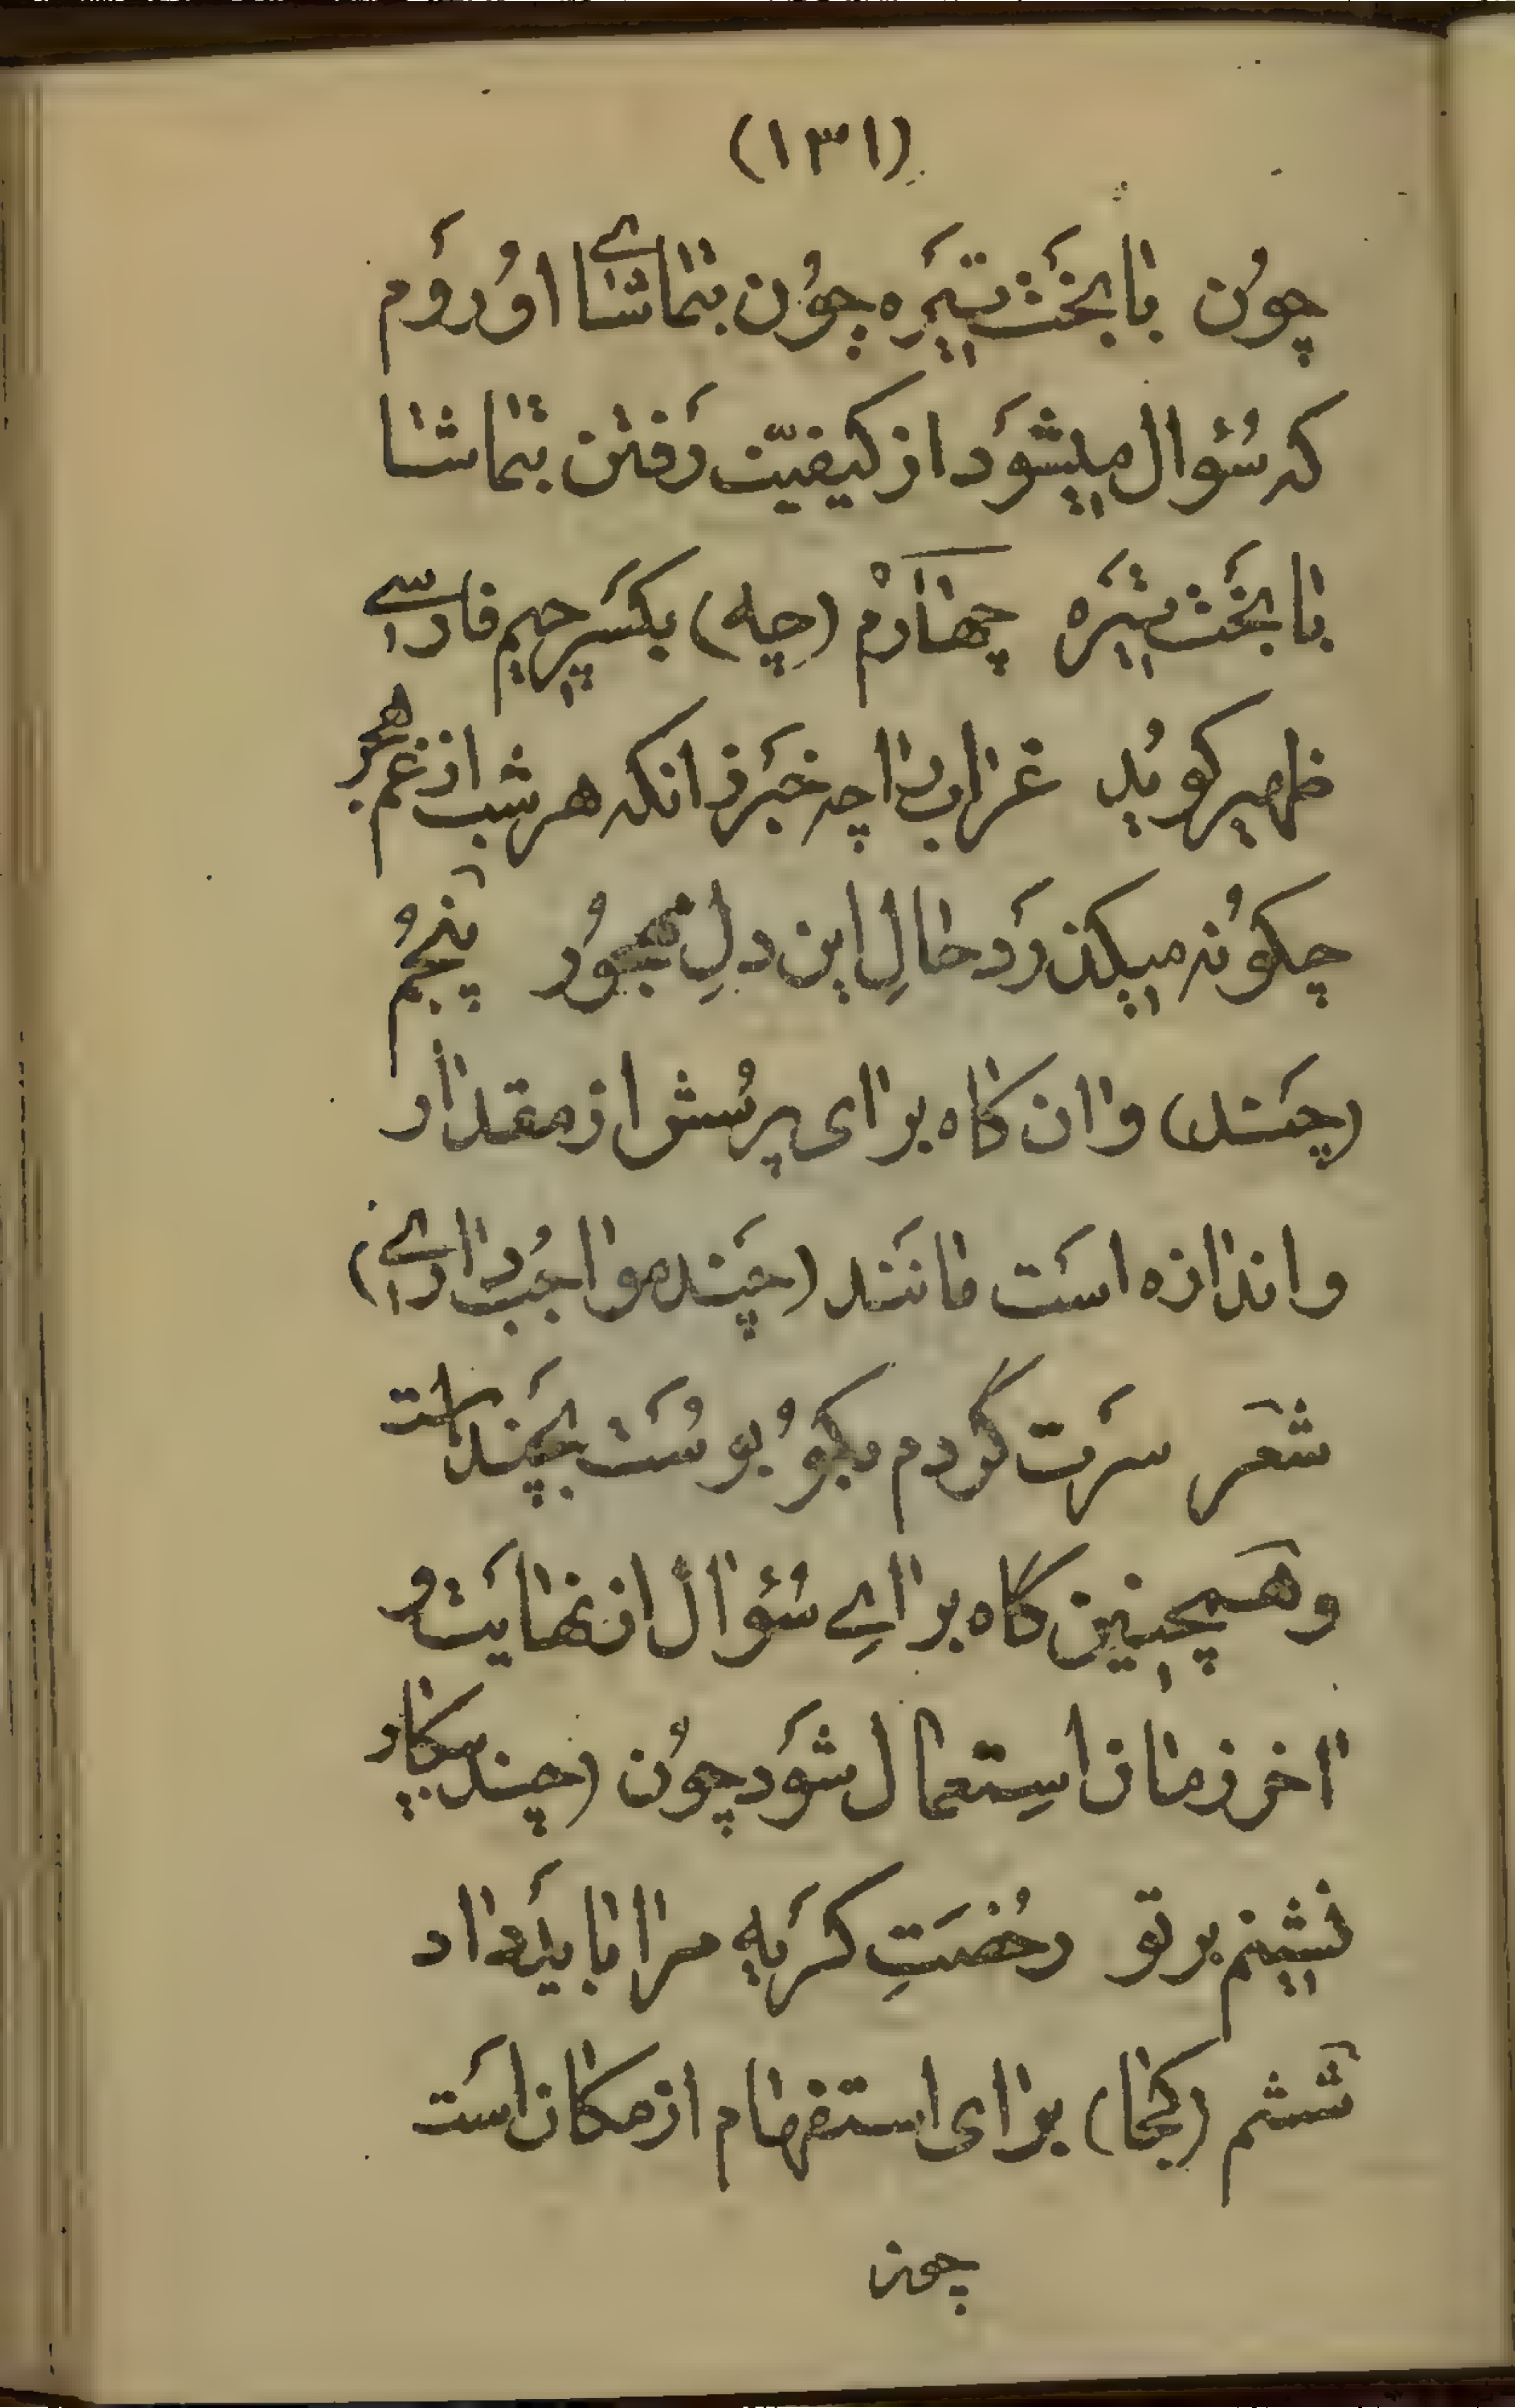 (۱۳۱)
چوُن بابخَت تیَره چوُن بتماشاے اوُ روَم
که سُؤال میشوَد از کیفیّت رَفتن بتماشا
بابخَت تیَره چهارْم (چِه) بکسَر جیم فارسے
ظهیر کویُد غراب را چه خبَر زانکه هر شب از غم هجر
چکوُنه میکذرَد حالِ این دلِ مهجوُر پنجمُ
(چَند) وان کاه برای پرُسش از مقدار
و اندازه استَ مانَند (چَند مواجبُ دارے)
شعَر سرَت گردم بکوُ بوسُت بچَند است
و همَچنین گاه براے سُؤال از نهایَت و
اخر زمان استِعمال شوَد چوُن (چند بیکار
نشینم بر تو رخُصَتِ کرَیه مرا بایَد داد
ششَم (کجا) برای استفهام از مکان استَ
چون